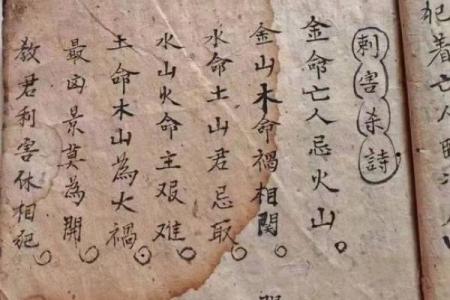 犯着亡人
刺害杀詩
金命亡人忌火山。
金山木命禍相関。
水命土山君忌取
水山火命主艰难。
土命木山為大禍。
最凶景莫為開。
教君利害休相犯。